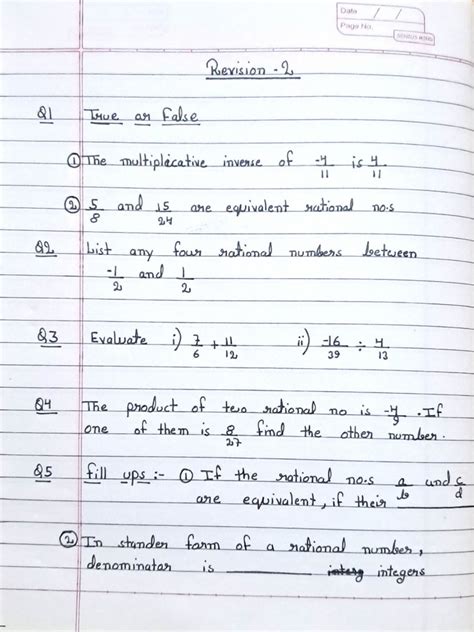 Date / /
Page No.
Revision - 2
Q1 True or False
① The multiplicative inverse of -4/11 is 4/11
② 5/8 and 15/24 are equivalent rational no.s
Q2 List any four rational numbers between
-1/2 and 1/2
Q3 Evaluate i) 7/6 + 11/12 ii) -16/39 ÷ 4/13
Q4 The product of two rational no is -4/9 . If
one of them is 8/27 find the other number.
Q5 fill ups :- ① If the rational no.s a/b and c/d
are equivalent, if their ______
② In standen form of a rational number,
denominator is ______ integers